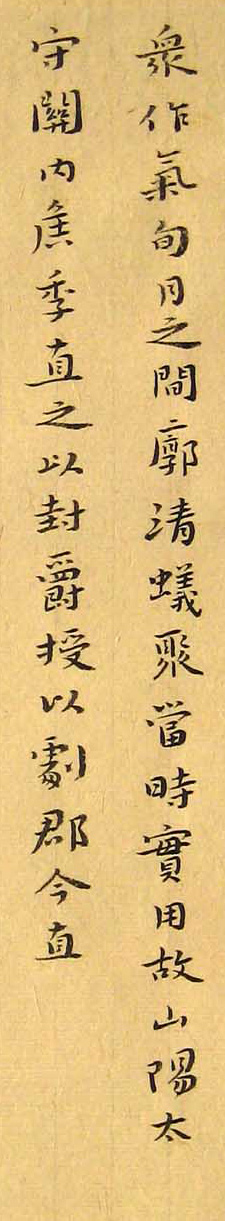 衆作氣旬月之間廓清蟻聚當時實用故山陽太
守關內矦季直之以封爵授以劇郡今直